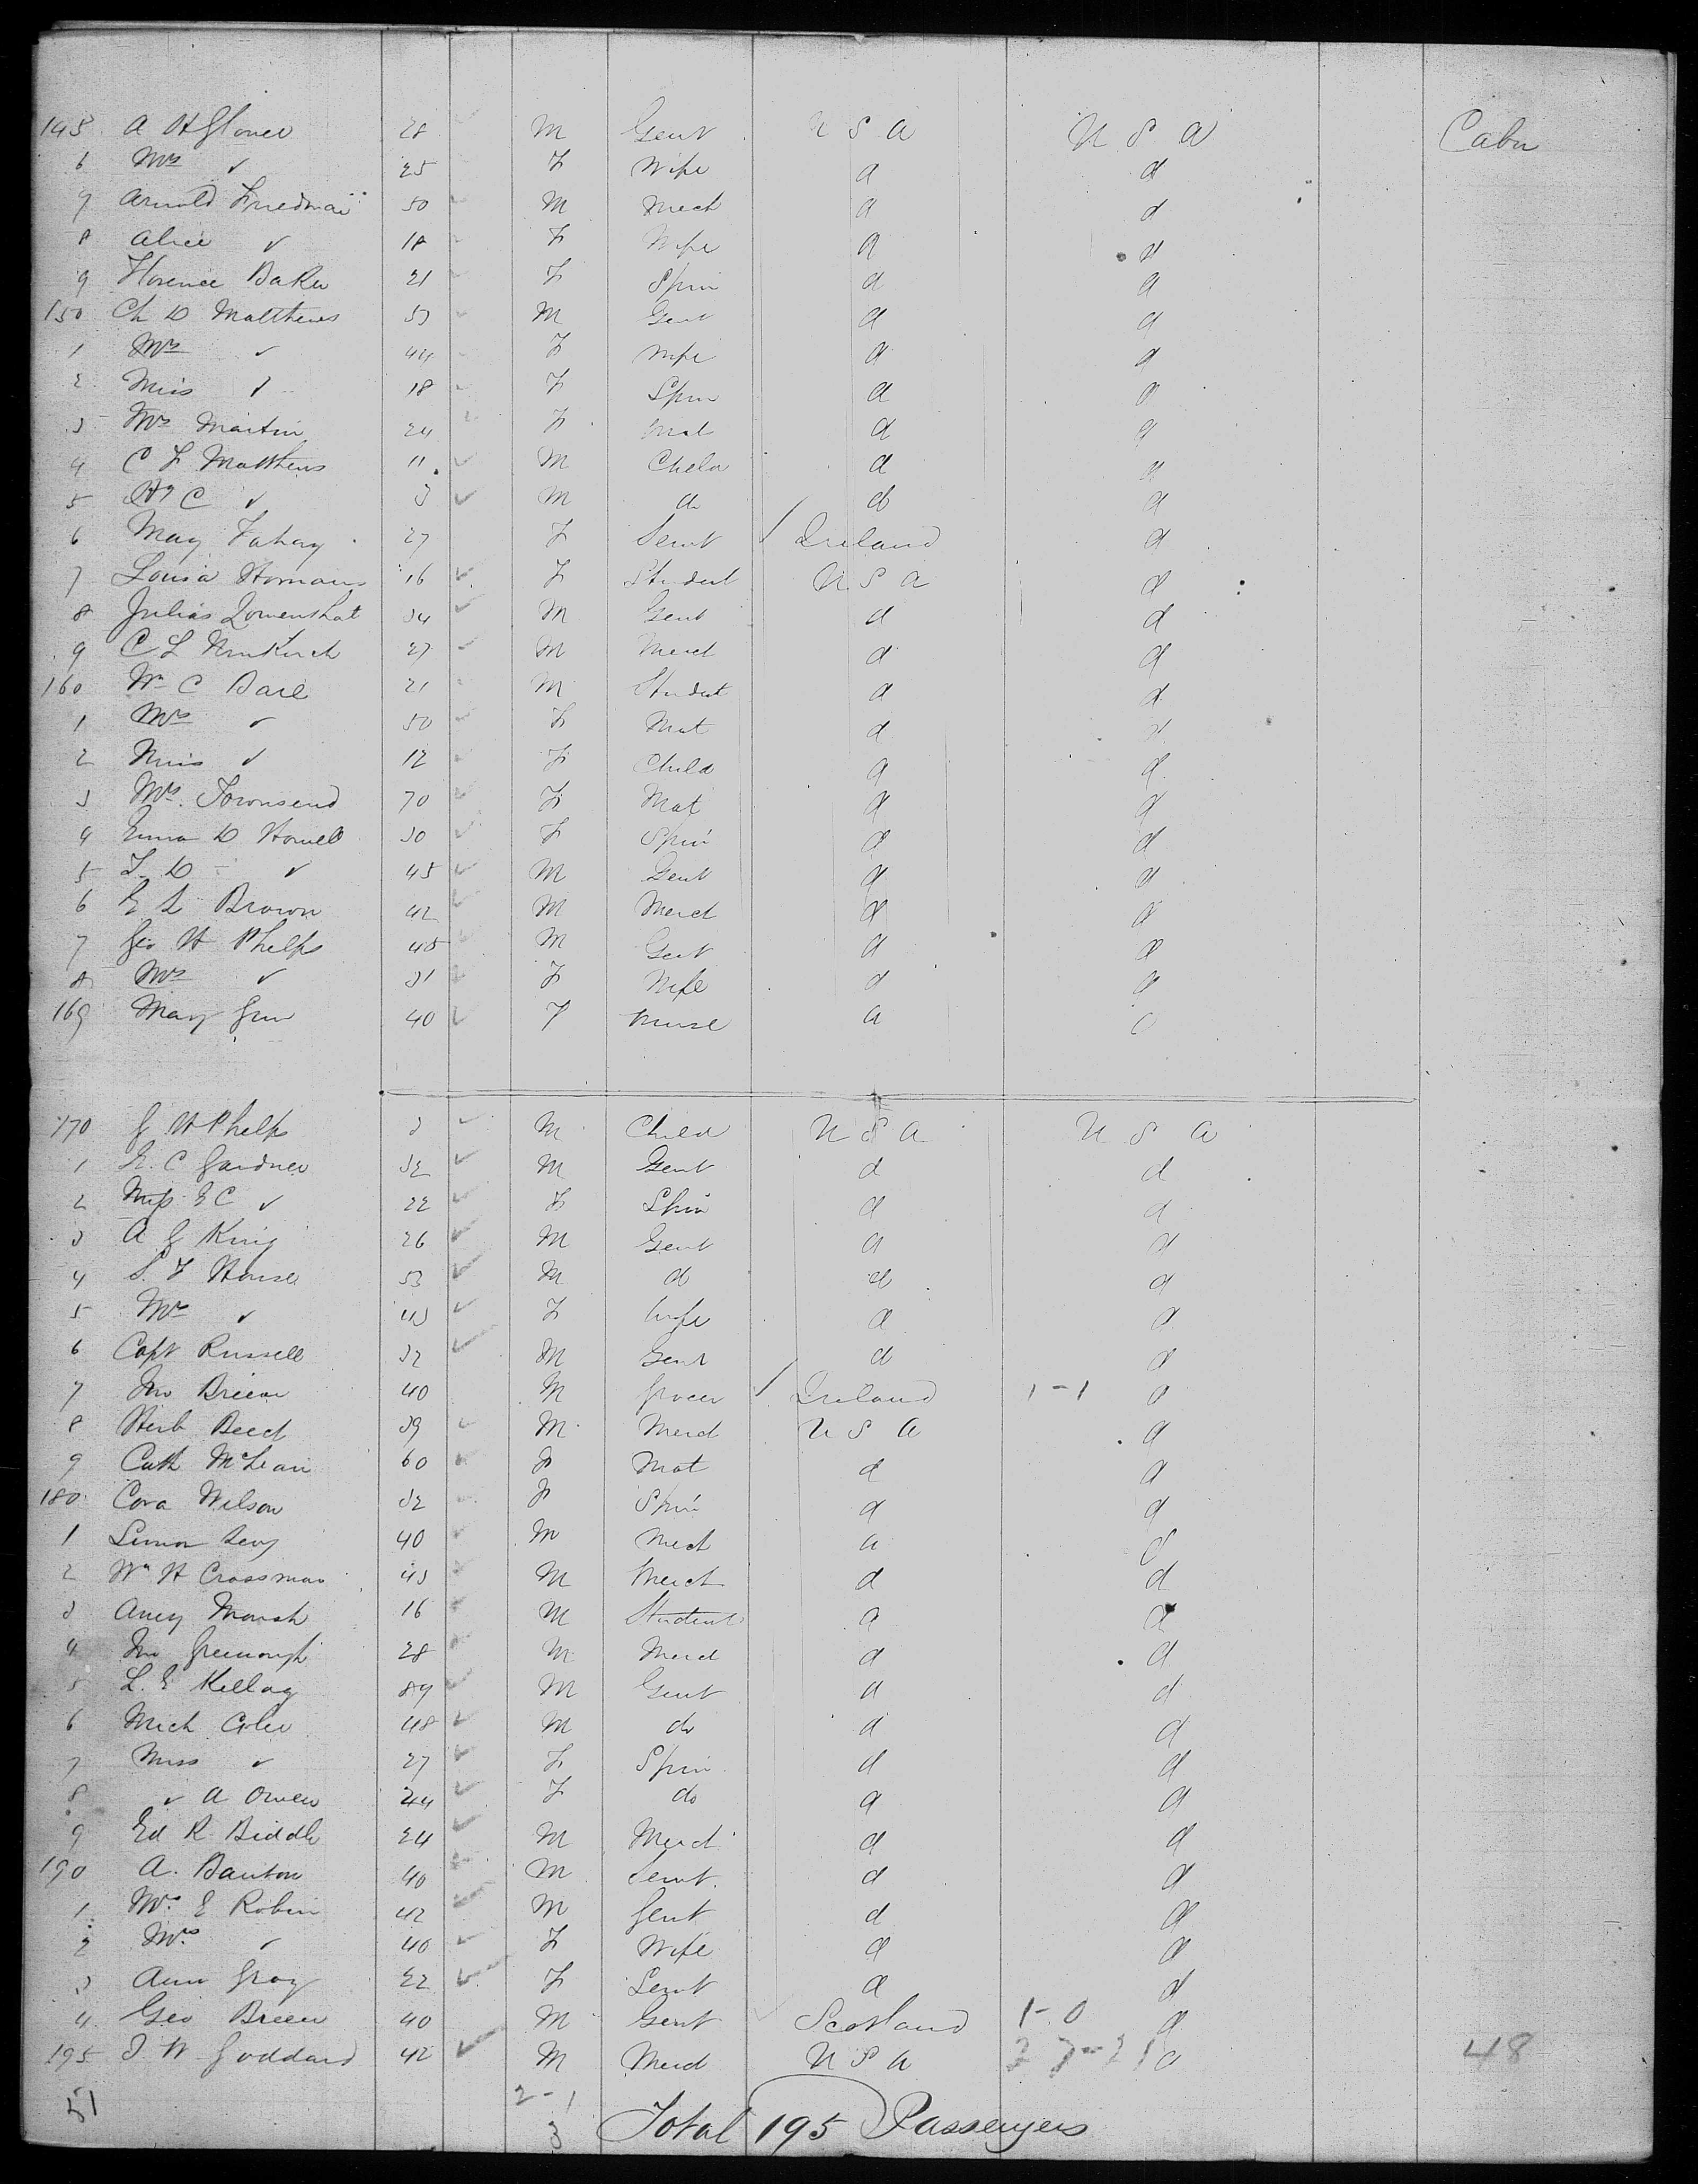 145 A H Glover 28 M Gent U S A U S A Cabin
6 Mrs ✓ 25 F Wife d d
7 Arnold Friedman 50 M Mech d d
8 Alice ✓ 18 F Wife d d
9 Florence Baker 21 F Spin d d
150 Ch D Matthews 53 M Gent d d
1 Mrs ✓ 44 F Wife d d
2 Miss ✓ 18 F Spin d d
3 Mrs Martin 24 F Mat d d
4 C F Matthews 11 M Child d d
5 C ✓ 3 M do do d
6 May Fahay 27 F Servt Ireland d
7 Louisa Homans 16 F Student U.S A d
8 Julias Lowenthal 34 M Gent d d
9 C L 27 M Mercht d d
160 Wm C Dare 21 M Student d d
1 Mrs ✓ 50 F Mat d d
2 Miss ✓ 12 F Child d d
3 Mrs. Townsend 70 F Mat d d
4 Emma D Howell 30 F Spin d d
5 T. D ✓ 45 M Gent d d
6 E L Brown 42 M Merct d d
7 Geo H Phelps 45 M Gent d d
8 Mrs ✓ 31 F Wife d d
169 Mary 40 F Nurse d d
170 G H Phelps 3 M Child U S A U S A
1 E. C Gardner 32 M Gent d d
2 Miss E C ✓ 22 F Spin d d
3 A G King 26 M Gent d d
4 S. F House 53 M do do d
5 Mrs ✓ 43 F Wife d d
6 Capt Russell 32 M Gent d d
7 Jno 40 M Grocer Ireland 1-1 d
8 Herb Beect 39 M Merct U S A d
9 Cath McLean 60 F Mat d d
180 Cora Wilson 32 F Spin d d
1 Simon Levy 40 M Mech d d
2 Wm H Crossman 43 M Merct d d
3 Marsh 16 M Student d d
4 Jno Greenough 28 M Merct d d
5 L. E Kellog 39 M Gent d d
6 Mich Coler 48 M do d d
7 Miss ✓ 27 F Spin d d
8 ✓ A Owen 24 F do d d
9 Ed R Biddle 24 M Merct d d
190 A. Banton 40 M Servt. d d
1 Mr. E Robin 42 M Gent d d
2 Mrs ✓ 40 F Wife d d
3 Ann Gray 22 F Servt d d
4 Geo Breen 40 M Gent Scotland 1-0 d
195 J W Goddard 42 M Merct U S A 27-21 d 48
51 2-1
3 Total 195 Passengers